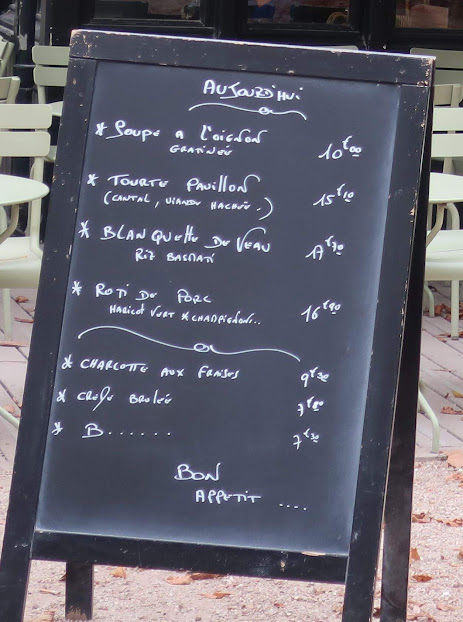 AUJOURD'HUI
* SOUPE A L'OIGNON 10€00
GRATINEE
* TOURTE PAVILLON 15€10
(CANTAL, VIANDE HACHEE.)
* BLANQUETTE DE VEAU 17€30
RIZ BASMATI
* ROTI DE PORC 16€90
HARICOT VERT & CHAMPIGNONS..
* CHARLOTTE AUX FRAISES 9€30
* CREME BRULEE 7€80
* B....... 7€30
BON
APPETIT ....